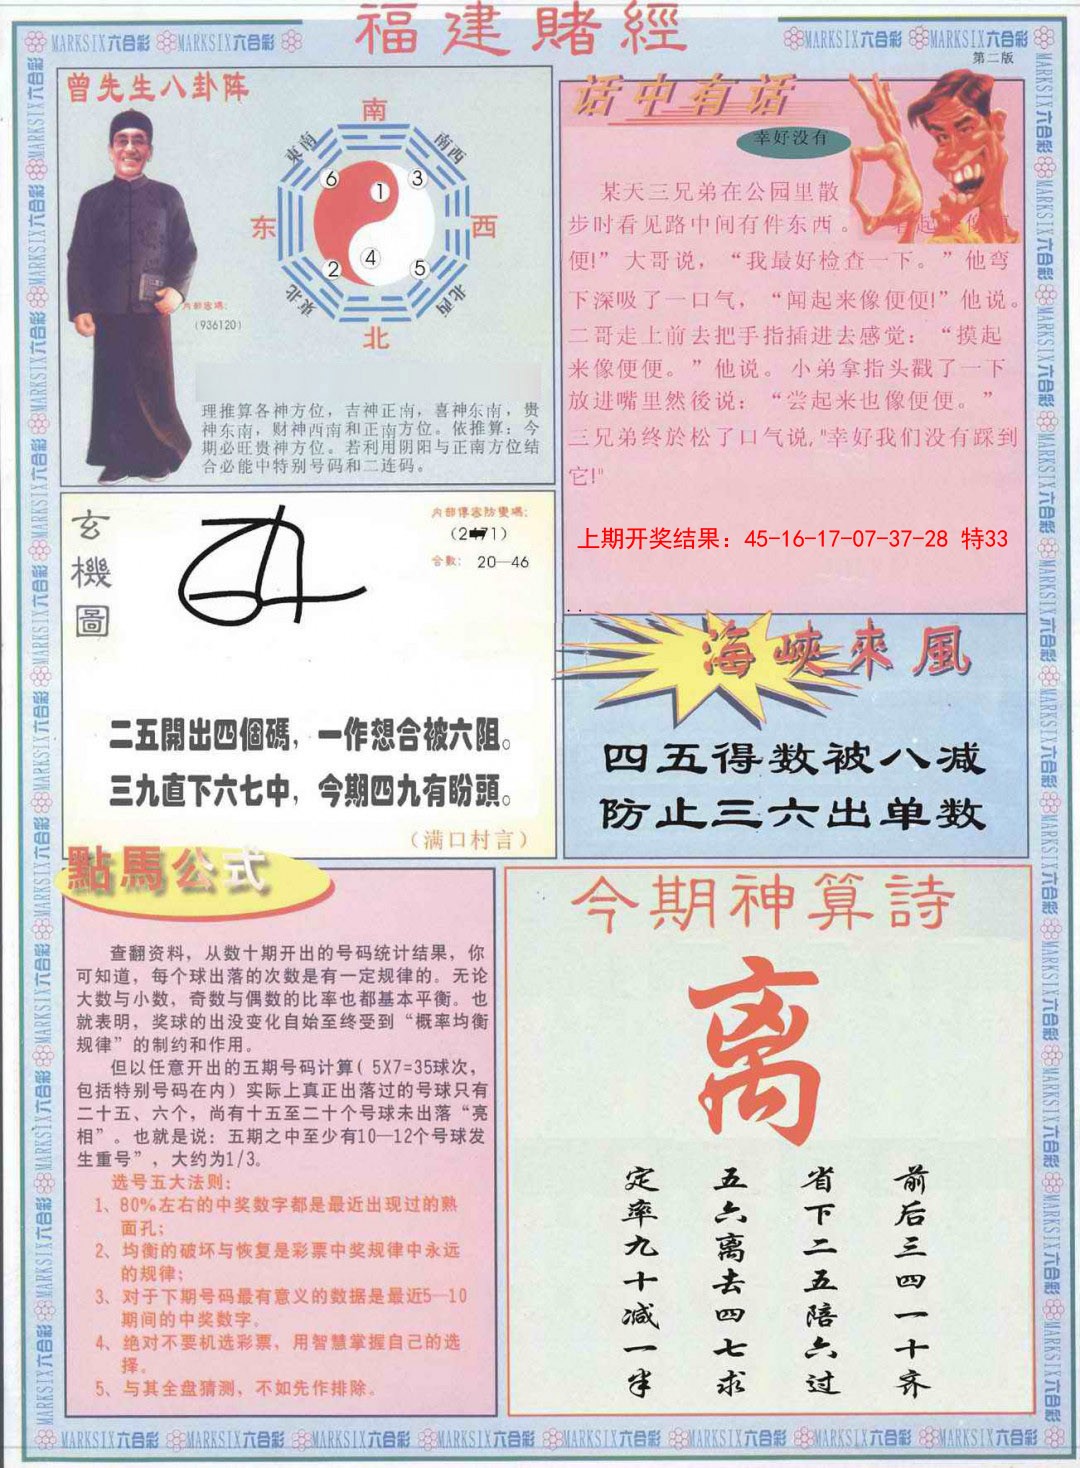 福建賭經
MARKSIX六合彩 MARKSIX六合彩 MARKSIX六合彩 MARKSIX六合彩
第二版
曾先生八卦阵
南
東南
南西
6 1 3
东 西
2 4 5
東北
北西
北
内部密碼:
(936120)
理推算各神方位，吉神正南，喜神东南，贵
神东南，财神西南和正南方位。依推算：今
期必旺贵神方位。若利用阴阳与正南方位结
合必能中特别号码和二连码。
话中有话
幸好没有
某天三兄弟在公园里散
步时看见路中间有件东西。
便!” 大哥说，“我最好检查一下。”他弯
下深吸了一口气，“闻起来像便便!”他说。
二哥走上前去把手指插进去感觉：“摸起
来像便便。”他说。小弟拿指头戳了一下
放进嘴里然後说：“尝起来也像便便。”
三兄弟终於松了口气说,"幸好我们没有踩到
它!"
上期开奖结果：45-16-17-07-37-28 特33
玄機圖
合數: 20—46
二五開出四個碼，一作想合被六阻。
三九直下六七中，今期四九有盼頭。
（满口村言）
海峽來風
四五得数被八减
防止三六出单数
點馬公式
查翻资料，从数十期开出的号码统计结果，你
可知道，每个球出落的次数是有一定规律的。无论
大数与小数，奇数与偶数的比率也都基本平衡。也
就表明，奖球的出没变化自始至终受到“概率均衡
规律”的制约和作用。
但以任意开出的五期号码计算( 5X7=35球次，
包括特别号码在内）实际上真正出落过的号球只有
二十五、六个，尚有十五至二十个号球未出落“亮
相”。也就是说：五期之中至少有10—12个号球发
生重号”，大约为1/3。
选号五大法则：
1、80%左右的中奖数字都是最近出现过的熟
面孔；
2、均衡的破坏与恢复是彩票中奖规律中永远
的规律；
3、对于下期号码最有意义的数据是最近5—10
期间的中奖数字。
4、绝对不要机选彩票，用智慧掌握自己的选
择。
5、与其全盘猜测，不如先作排除。
今期神算詩
离
前后三四一十齐
省下二五陪六过
五六离去四七求
定率九十减一半